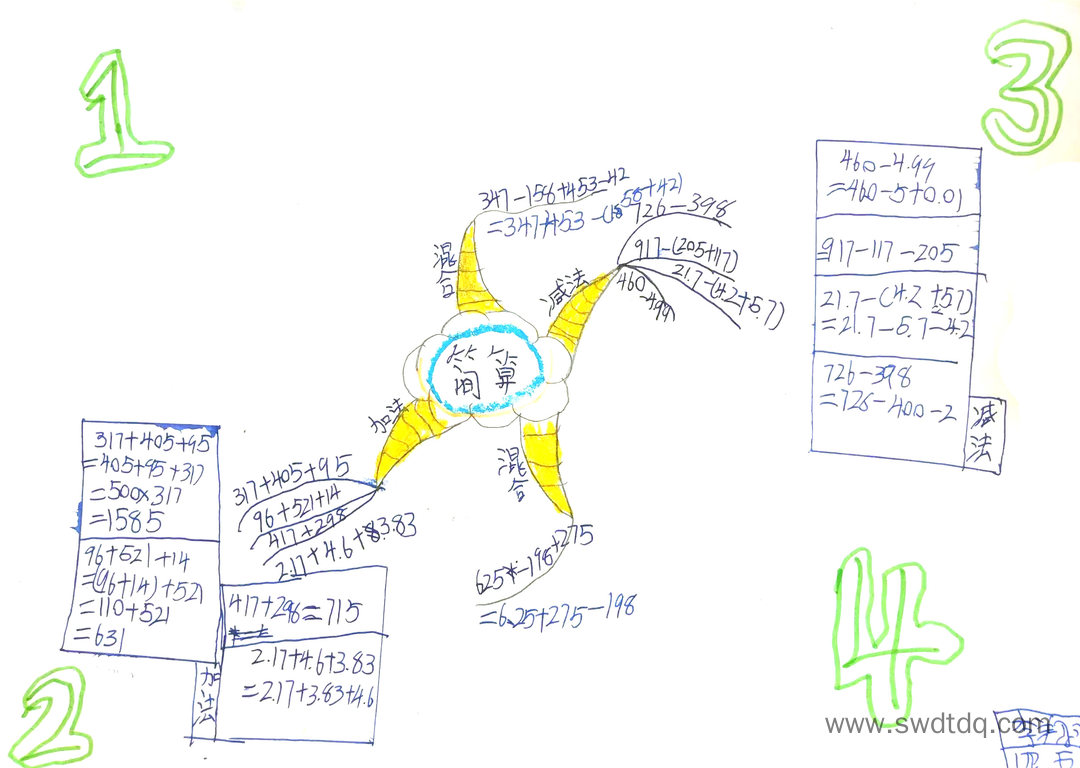 1
3
347-158+453-42
=347+453-(158+42)
混合
减法
726-398
917-(205+117)
21.7-(4.2+5.7)
460-4.99
简算
加法
317+405+95
96+521+14
417+298
2.17+4.6+3.83
混合
625-198+275
=6.25+275-198
460-4.99
=460-5+0.01
=917-117-205
21.7-(4.2+5.7)
=21.7-5.7-4.2
726-398
=726-400-2
减法
317+405+95
=405+95+317
=500×317
=1585
96+521+14
=(96+14)+521
=110+521
=631
417+298=715
2.17+4.6+3.83
=2.17+3.83+4.6
加法
2
4
www.swdtdq.com